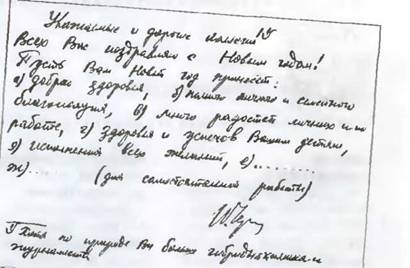 Уважаемые и дорогие коллеги!¹⁾
Всех Вас поздравляю с Новым годом!
Пусть Вам Новый год принесет:
а) доброе здоровье, б) личного и семейного
благополучия, в) много радостей личных и по
работе, г) здоровья и успехов Вашим детям,
д) исполнения всех желаний, е) ........
ж) .... (для самостоятельной работы)
¹⁾ Хотя по природе Вы больше и
журналисты